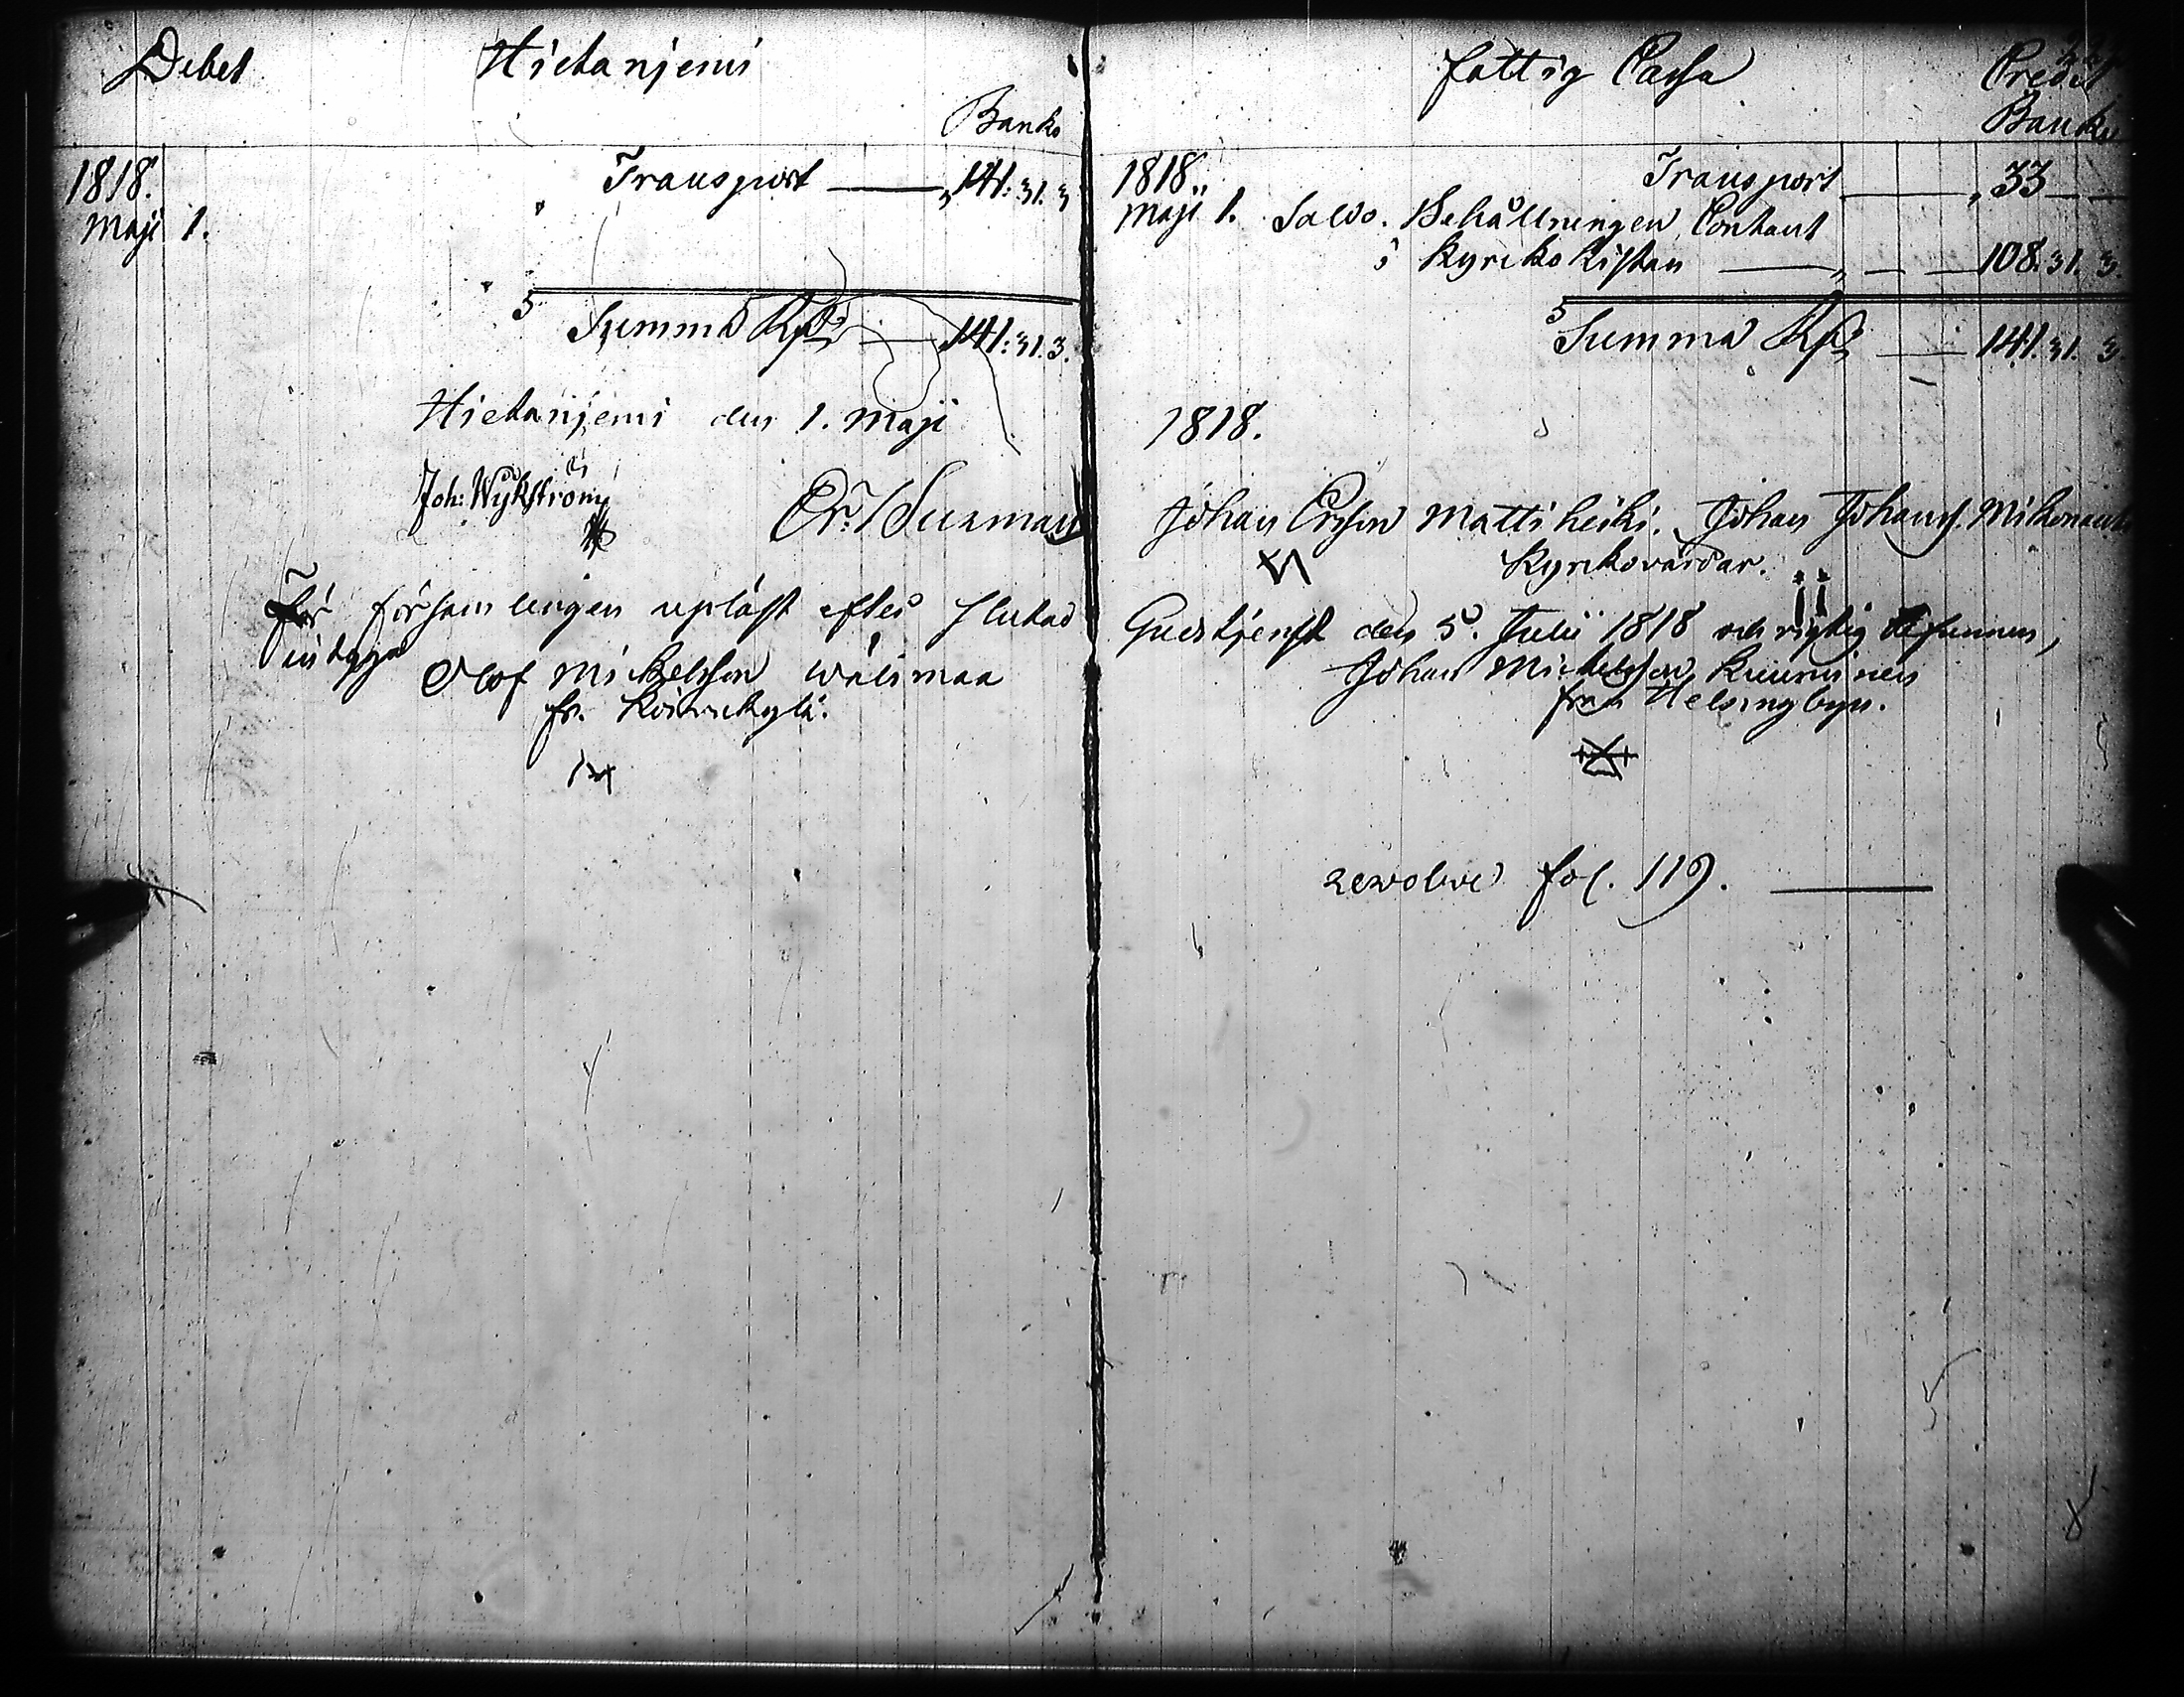 Debet Hietaniemi
Banko
1818. Transport 141: 31. 3
Maji 1.
Summa Rd 141: 31. 3.
Hietaniemi den 1. Maji
Joh: Wykström Er. Burman
För församlingen upläst efter slutad
intyga
Olof Mickelsson Wälimaa
fr. Koivukylä.
fattig Cassa Credit
Banko
1818. Transport 33
Maji 1. Saldo. Behållningen Contant
i Kyrko Kistan 108. 31. 3.
Summa Rd 141. 31. 3
1818.
Johan Ersson Mattiheiki. Johan Johanss.
Kyrkovärdar.
Gudstjenst den 5. Julii 1818 och rigtig befunnen,
Johan Michelsson
från Helsingbyn.
revolve fol. 119.